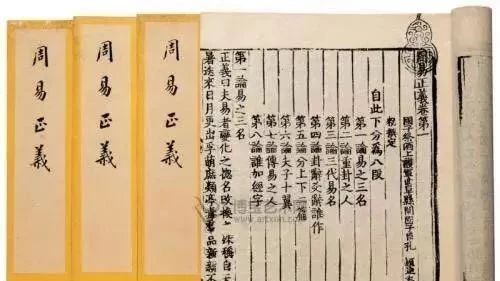 周易正義卷第一
國子祭酒上護軍曲阜縣開國子臣孔穎達
勑撰定
自此下分為八段
第一論易之三名
第二論重卦之人
第三論三代易名
第四論卦辭爻辭誰作
第五論分上下二篇
第六論夫子十翼
第七論傳易之人
第八論誰加經字
第一論易之三名
正義曰夫易者變化之惣名改換之殊稱自天
暑迭來日月更出孚萌庶類亭毒羣品新新不
周易正義
周易正義
周易正義